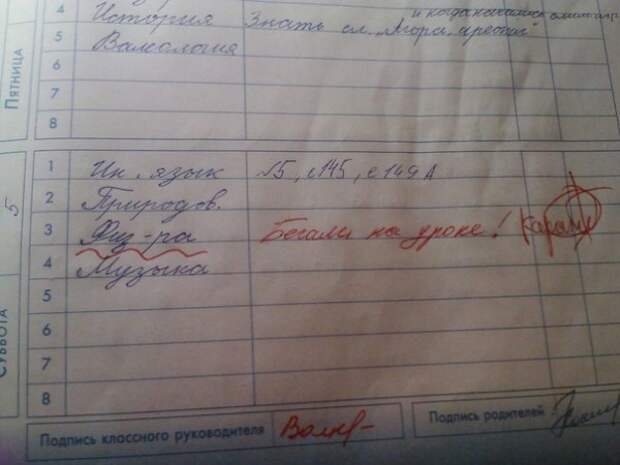 ПЯТНИЦА
4 История Знать сл. „Мора, и когда начались олимп.
5 Валеология
6
7
8
СУББОТА
5
1 Ин. язык №5, с145, с149А
2 Природов.
3 Физ-ра Бегали на уроке!
4 Музыка
5
6
7
8
Подпись классного руководителя
Подпись родителей